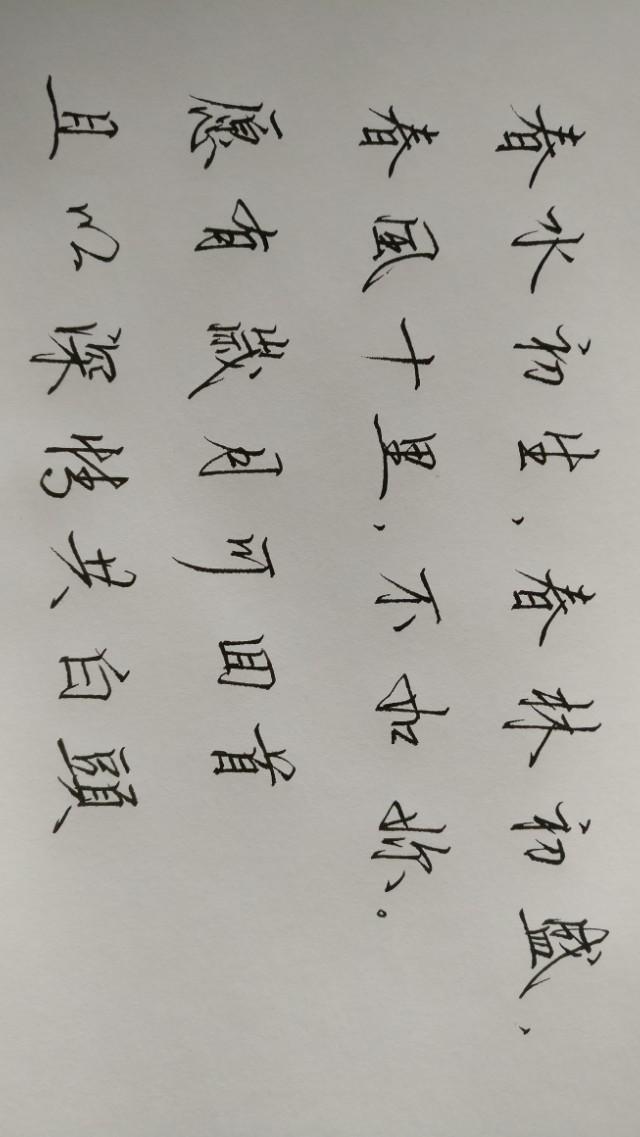 春水初生，春林初盛，
春風十里，不如你。
應有歲月可回首
且以深情共白頭